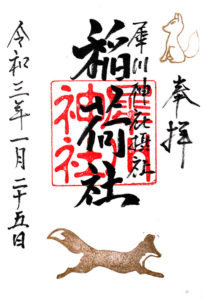 奉拝
犀川神社摂社
稲荷社
神社
令和三年一月二十五日